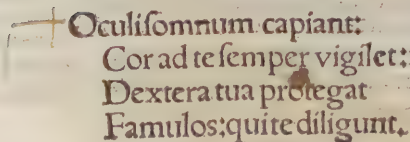 Oculiſomnum capiant:
Cor ad te ſemper vigilet:
Dextera tua protegat
Famulos: qui te diligunt.